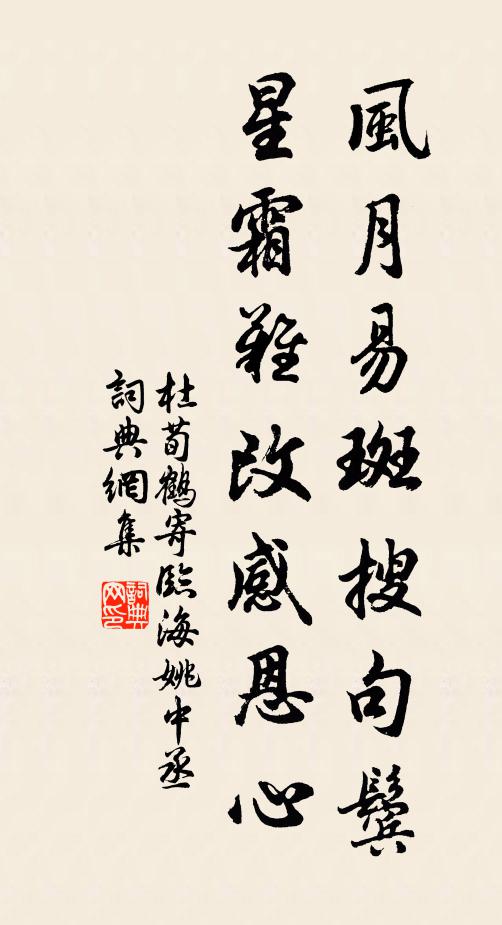 風月易斑搜句鬢
星霜難改感恩心
杜荀鶴寄臨海姚中丞
詞典網集
詞典
网印